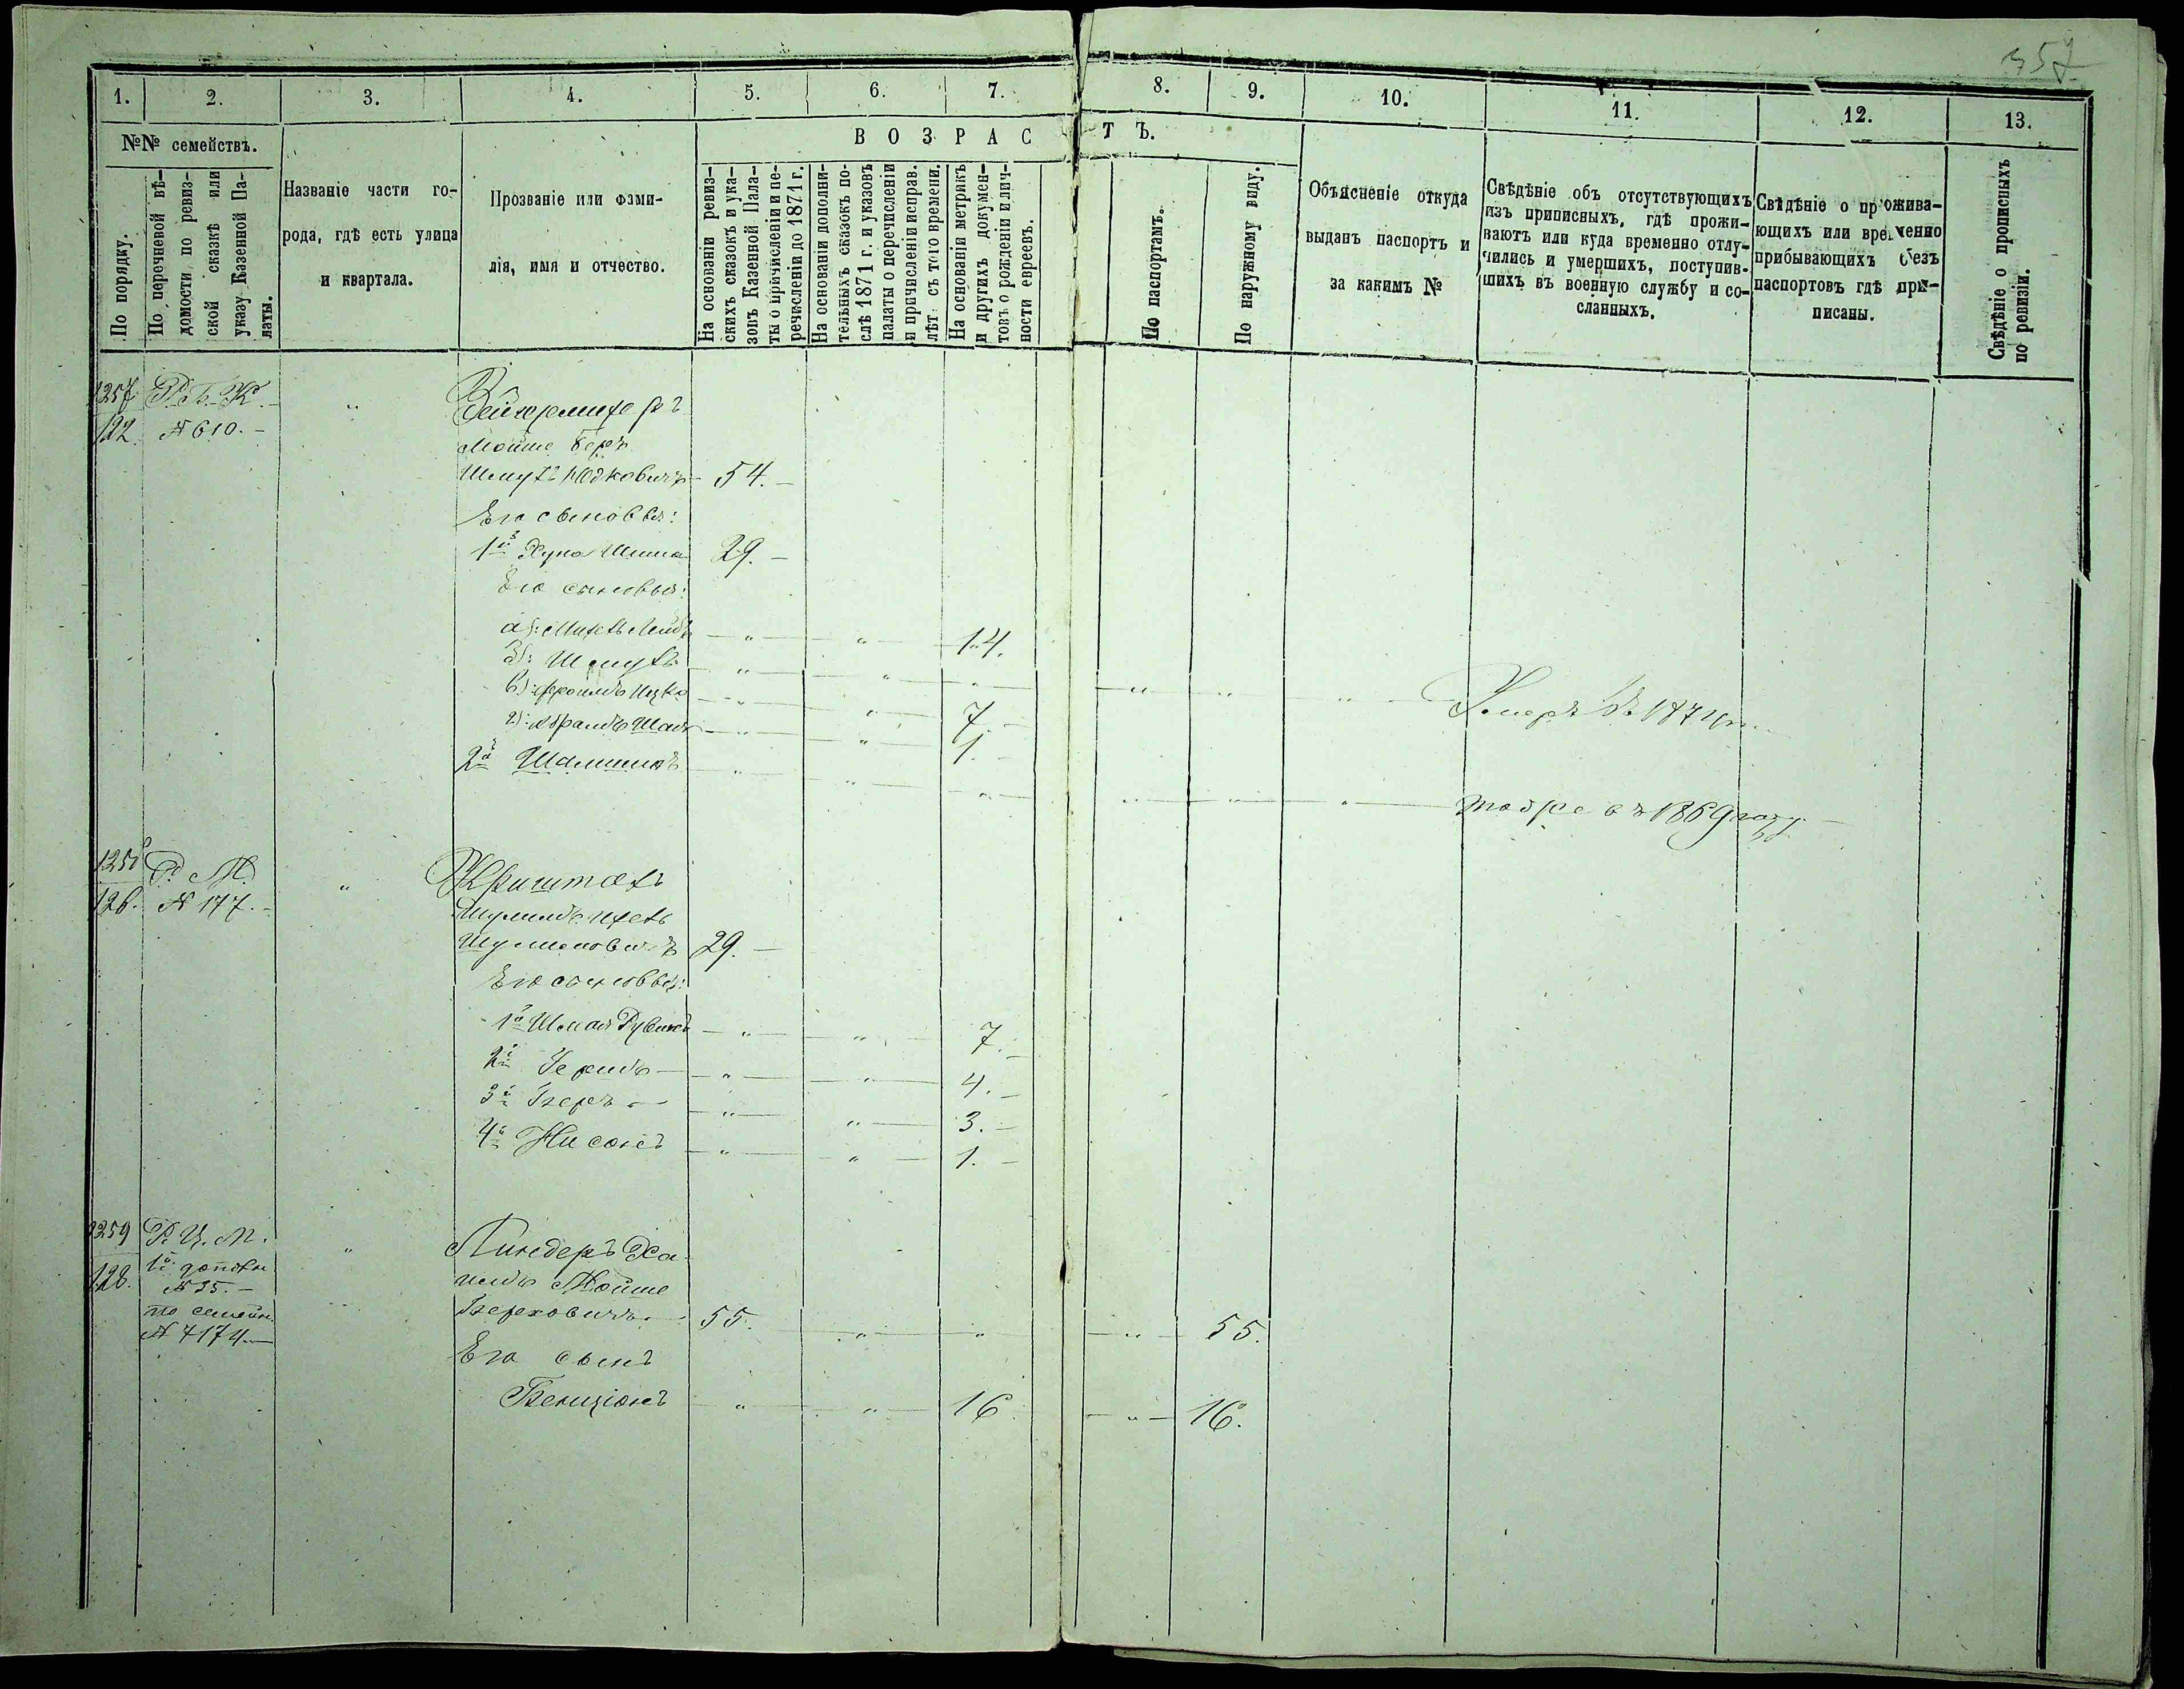 357
1. 2. 3. 4. 5. 6. 7. 8. 9. 10. 11. 12. 13.
№№ семействъ.
По порядку.
По перечневой вѣ-
домости по ревиз-
ской сказкѣ или
указу Казенной Па-
латы.
Названіе части го-
рода, гдѣ есть улица
и квартала.
Прозваніе или фами-
лія, имя и отчество.
ВОЗРАСТЪ.
На основаніи ревиз-
скихъ сказокъ и ука-
зовъ Казенной Пала-
ты о причисленіи и пе-
речисленіи до 1871 г.
На основаніи дополни-
тельныхъ сказокъ по-
слѣ 1871 г. и указовъ
палаты о перечисленіи
и причисленіи исправ.
лѣт съ того времени.
На основаніи метрикъ
и другихъ докумен-
товъ о рожденіи и лич-
ности евреевъ.
По паспортамъ.
По наружному виду.
Объясненіе откуда
выданъ паспортъ и
за какимъ №
Свѣдѣніе объ отсутствующихъ
изъ приписныхъ, гдѣ прожи-
ваютъ или куда временно отлу-
чились и умершихъ, поступив-
шихъ въ военную службу и со-
сланныхъ.
Свѣдѣніе о прожива-
ющихъ или временно
прибывающихъ безъ
паспортовъ гдѣ при-
писаны.
Свѣдѣніе о прописныхъ
по ревизіи.
1257 Р. Б. К. "
122. № 610.-
Мойше Беръ
Шмуль Юдковичъ 54.-
Его сыновья:
1й Хуна Шина 29.-
Его сыновья:
а): Михель Лейбъ " " 14.
Шмуль " " " " " " Умеръ въ 1871 г.
в): Фроимъ Ицко " " 7.-
г): Абрамъ " " 1.-
2й " " " " " " тоже въ 1869 году.
1258 Р. М. " Криштал
128. № 177.-
Шулимъ
Шулимовичъ 29.-
Его сыновья:
1й Шмая Рувинъ " " 7.-
2й Гершъ " " 4.-
3й Беръ " " 3.-
4й Нисонъ " " 1.-
1259 Р. Ц. М. " Линдеръ Ха-
128. 1й дополн. имъ Мойше
№ 35.- Берковичъ 55. " " " 55.
по семейн.
№ 7174 Его сынъ
Бенціонъ " " 16. " 16.